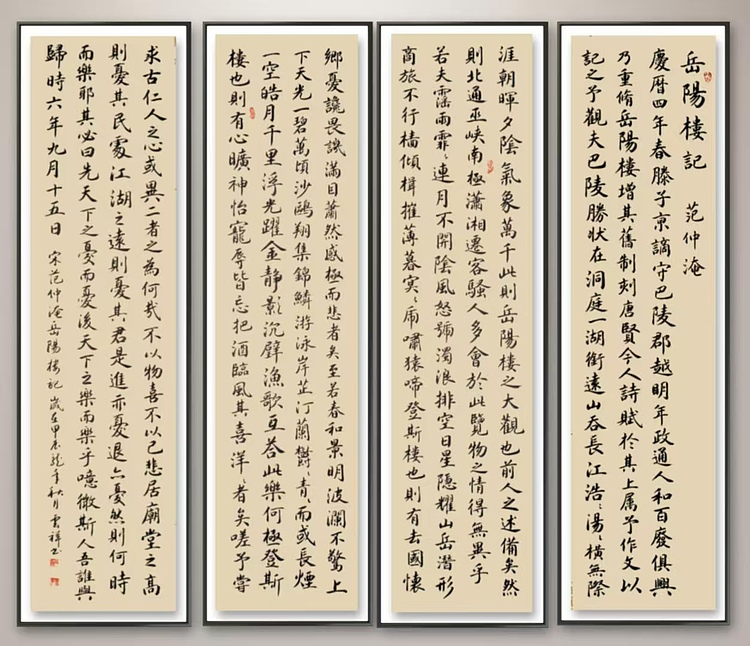 岳陽樓記 范仲淹
慶曆四年春滕子京謫守巴陵郡越明年政通人和百廢俱興
乃重脩岳陽樓增其舊制刻唐賢今人詩賦於其上屬予作文以
記之予觀夫巴陵勝狀在洞庭一湖銜遠山吞長江浩〻湯〻橫無際
涯朝暉夕陰氣象萬千此則岳陽樓之大觀也前人之述備矣然
則北通巫峽南極瀟湘遷客騷人多會於此覽物之情得無異乎
若夫霪雨霏〻連月不開陰風怒號濁浪排空日星隱耀山岳潛形
商旅不行檣傾楫摧薄暮冥〻虎嘯猿啼登斯樓也則有去國懷
鄉憂讒畏譏滿目蕭然感極而悲者矣至若春和景明波瀾不驚上
下天光一碧萬頃沙鷗翔集錦鱗游泳岸芷汀蘭鬱〻青〻而或長煙
一空皓月千里浮光躍金靜影沉璧漁歌互答此樂何極登斯
樓也則有心曠神怡寵辱皆忘把酒臨風其喜洋〻者矣嗟予嘗
求古仁人之心或異二者之為何哉不以物喜不以己悲居廟堂之高
則憂其民處江湖之遠則憂其君是進亦憂退亦憂然則何時
而樂耶其必曰先天下之憂而憂後天下之樂而樂乎噫微斯人吾誰與
歸時六年九月十五日 宋范仲淹岳陽樓記 歲在甲辰龍年秋月雲祥書